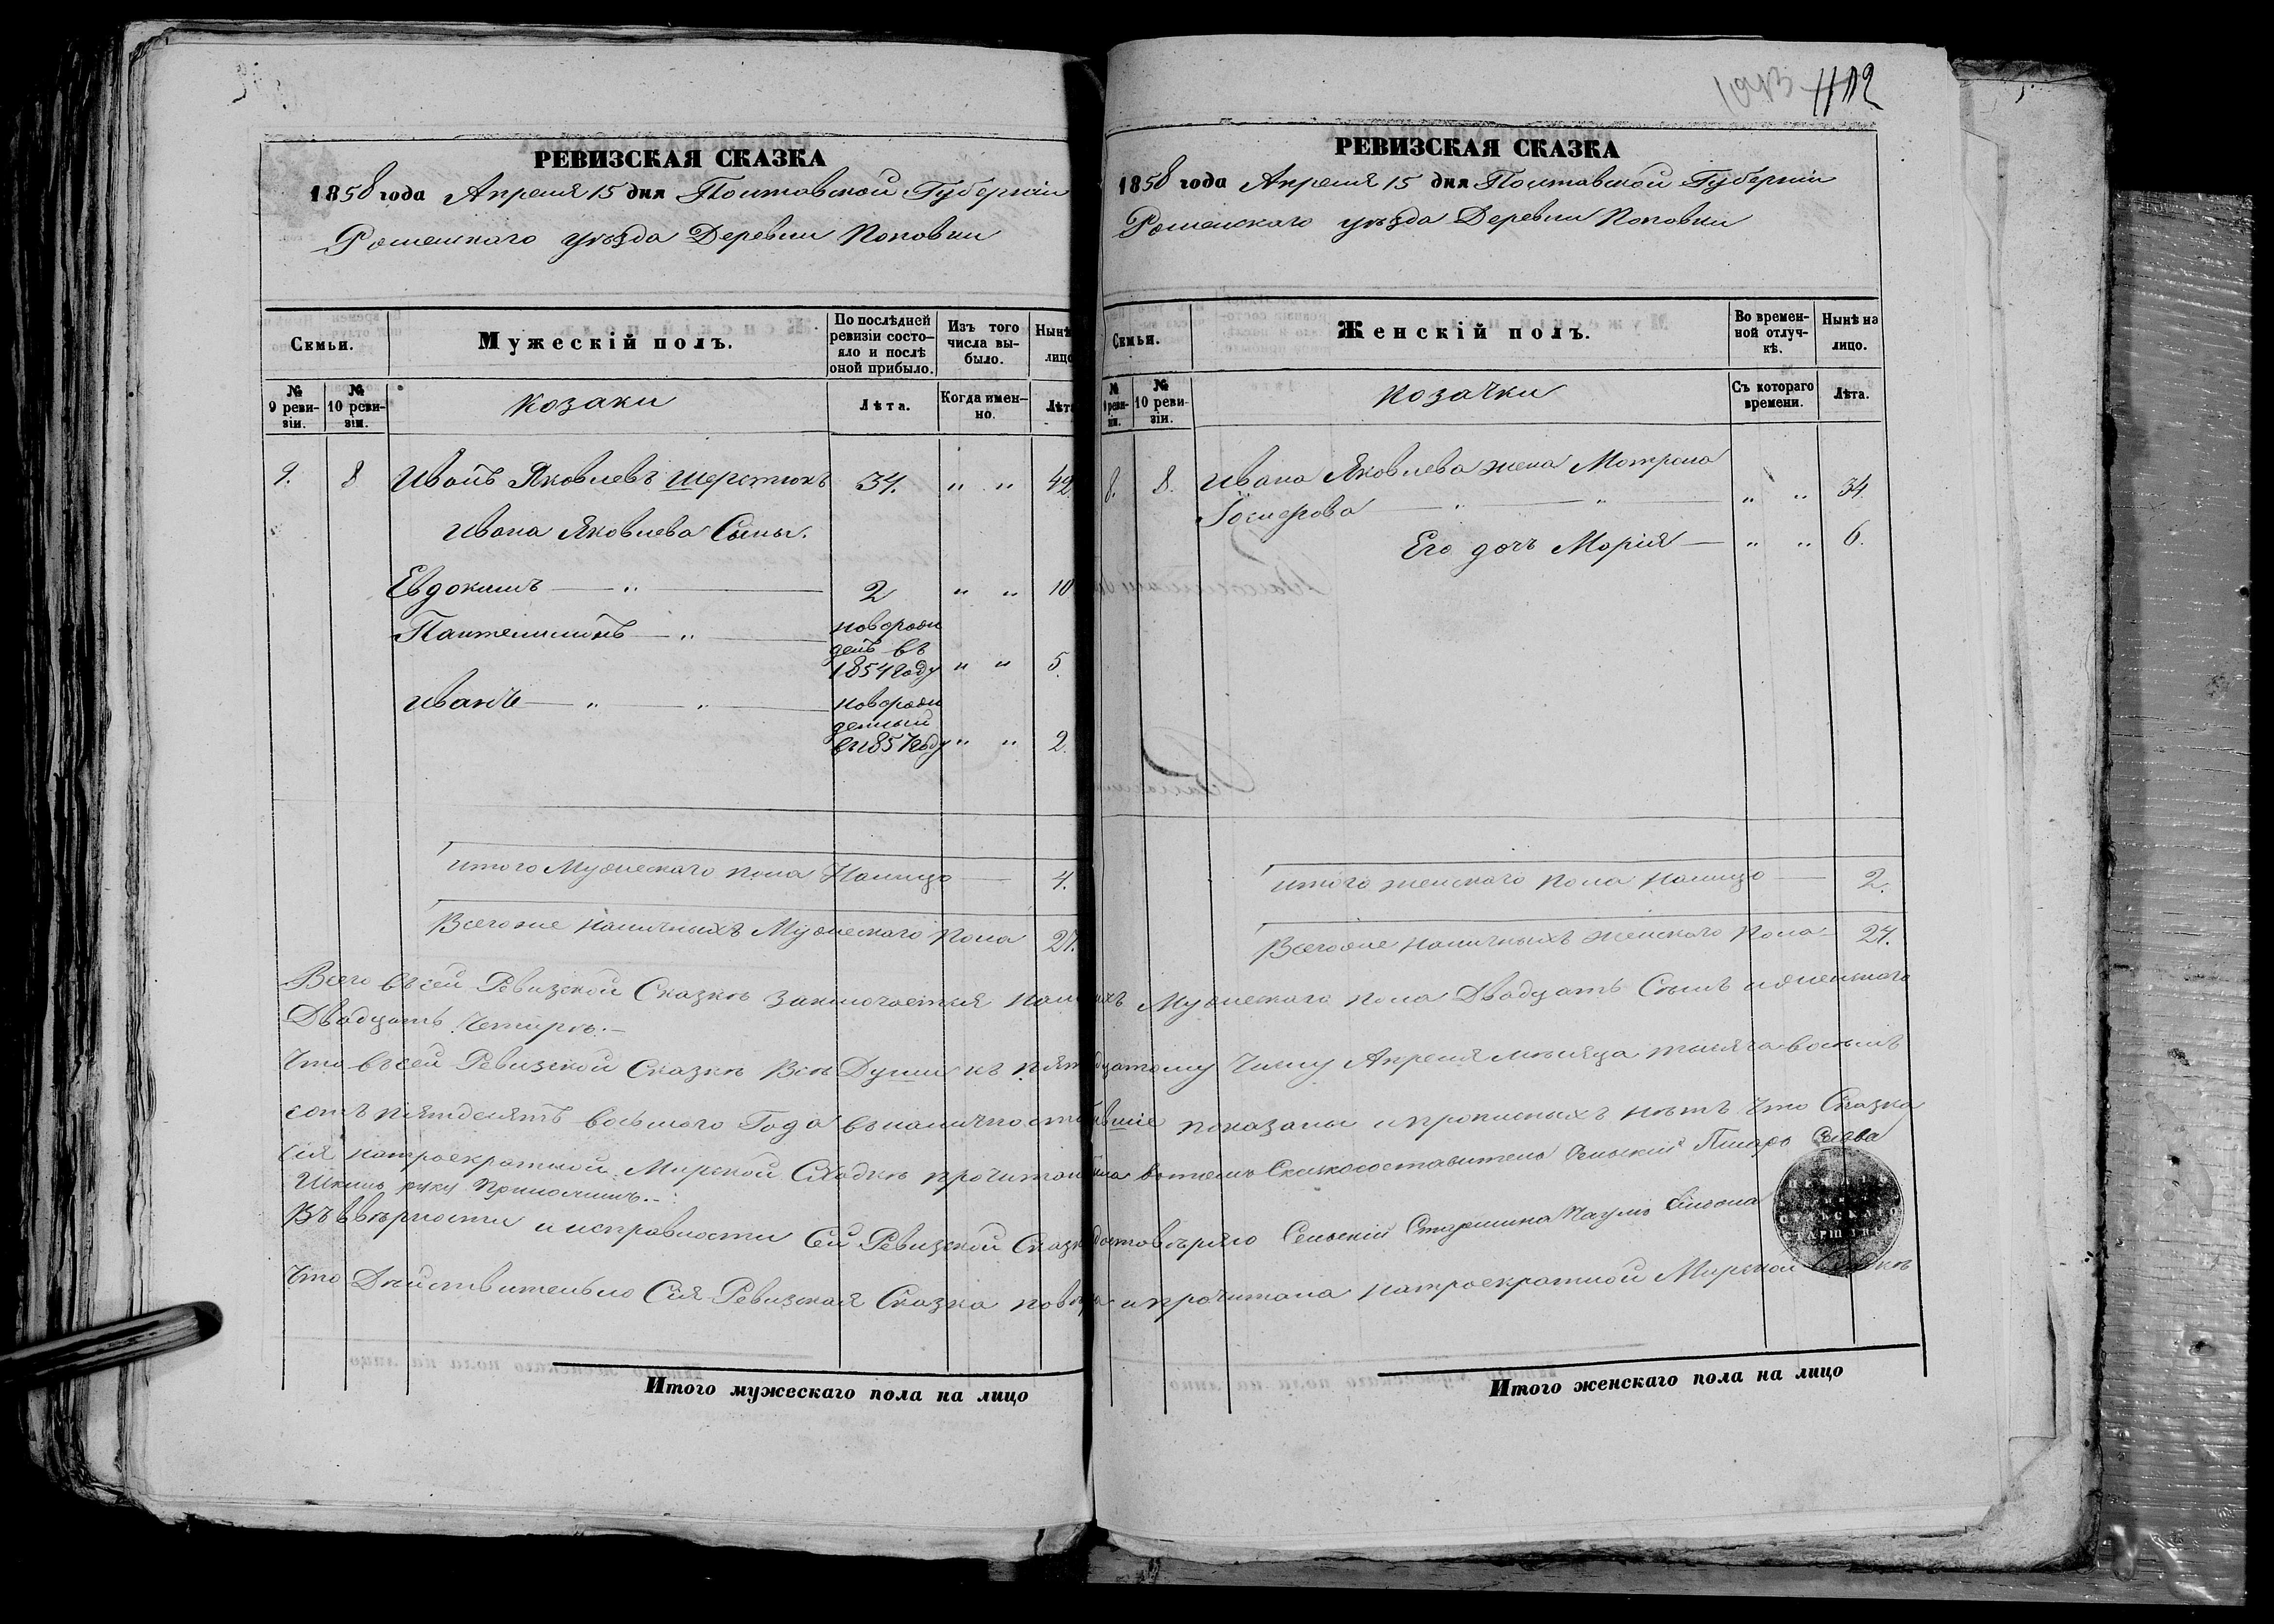 1112
РЕВИЗСКАЯ СКАЗКА
1858 года Апреля 15 дня Полтавской Губерніи
Роменскаго уѣзда Деревни Поповки
Семьи.
Мужескій полъ.
По послѣдней ревизіи состо-
яло и послѣ оной прибыло.
Изъ того числа вы-
было.
Нынѣ
лицо
№ 9 реви-
зіи.
№ 10 реви-
зіи.
Козаки
Лѣта.
Когда имен-
но.
Лѣта
9. 8 Иванъ Яковлевъ Шерстюкъ 34. " " 42.
Ивана Яковлева Сыны.
Евдокимъ — " — 2 " " 10
Пантелимонъ — " — новорож
денъ въ
1854 году " " 5.
Иванъ — " — " — новорож
денный
въ 1857 году " " 2.
Итого Мужескаго пола Налицо — 4.
Всего же наличныхъ Мужескаго пола 27.
РЕВИЗСКАЯ СКАЗКА
1858 года Апреля 15 дня Полтавской Губерніи
Роменскаго уѣзда Деревни Поповки
Семьи.
Женскій полъ.
Во времен-
ной отлуч-
кѣ.
Нынѣ на
лицо.
№ 9 реви-
зіи.
№ 10 реви-
зіи.
Козачки
Съ котораго
времени.
Лѣта.
8. 8. Ивана Яковлева жена Мотрона
— " — " — " " 34.
Его дочь Марія — " " 6.
Итого женскаго пола налицо — 2.
Всего же наличныхъ женскаго пола — 24.
Всего въ сей Ревизской Сказкѣ заключается наличныхъ Мужескаго пола Двадцать Семь и женскаго
Двадцать Четыре. —
Что въ сей Ревизской Сказкѣ всѣ Души къ пятнадцатому числу Апреля мѣсяца тысяча восемь
сотъ пятдесятъ восьмого Года въ наличности бывшіе показаны и прописныхъ нѣтъ что Сказка
сія на троекратной Мирской Сходкѣ прочитанна въ томъ Сказкосоставитель Сельскій Писарь
руку Приложилъ. —
Въ вѣрности и исправности Сей Ревизской Сказки достовѣряю Сельскій Старшина Наумъ
Что Дѣйствительно Сія Ревизская Сказка повѣрена и прочитана на троекратной Мирской Сходкѣ
Итого мужескаго пола на лицо
Итого женскаго пола на лицо